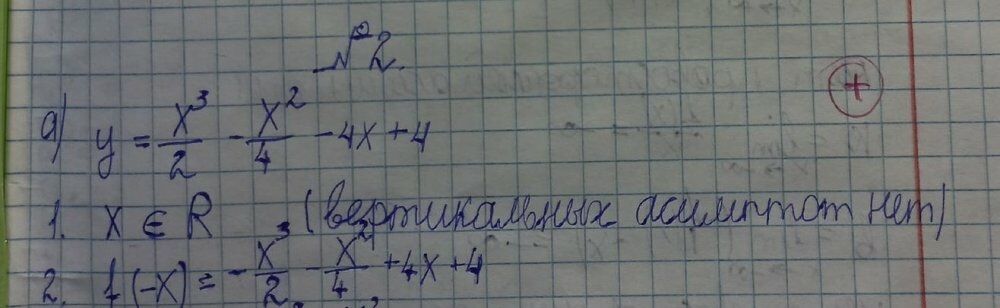 №2.
+
a) y = x³/2 - x²/4 - 4x + 4
1. x ∈ R (вертикальных асимптот нет)
2. f(-x) = -x³/2 - x²/4 + 4x + 4